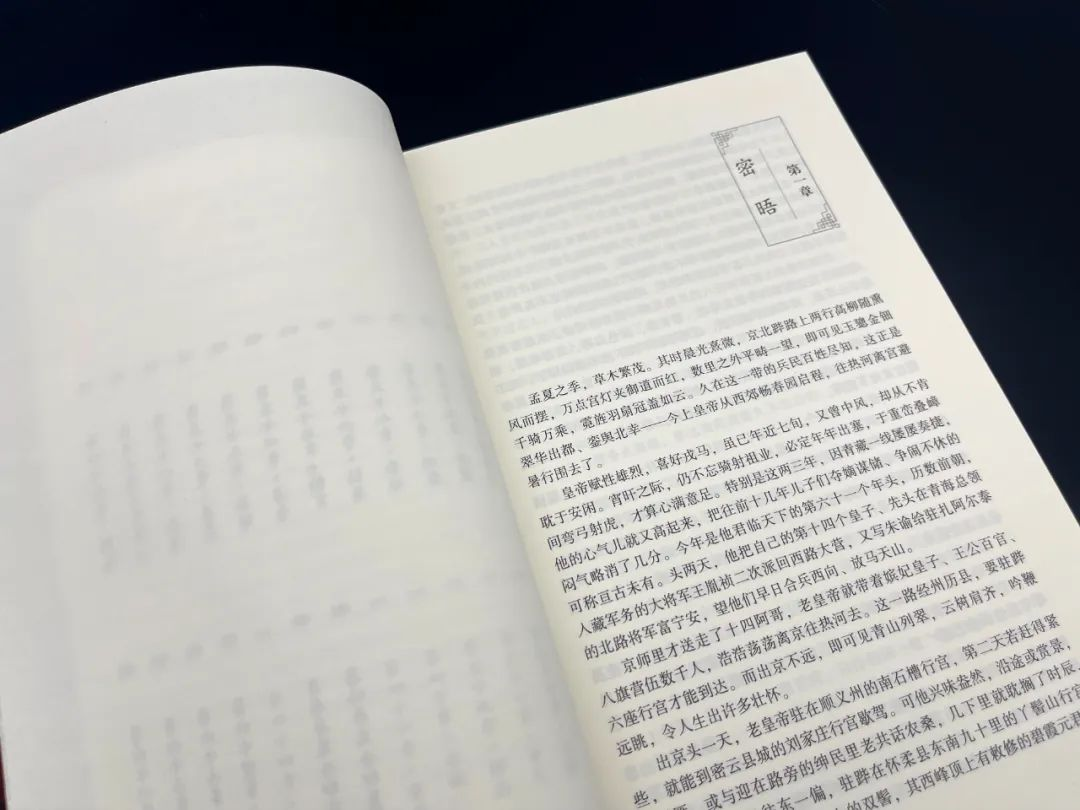 第一章
密晤
孟夏之季，草木繁茂。其时晨光熹微，京北跸路上两行高柳随熏
风而摆，万点宫灯夹御道而红，数里之外平畴一望，即可见玉骢金钿
千骑万乘，霓旌羽扇冠盖如云。久在这一带的兵民百姓尽知，这正是
翠华出都、銮舆北幸——今上皇帝从西郊畅春园启程，往热河离宫避
暑行围去了。
皇帝赋性雄烈，喜好戎马，虽已年近七旬，又曾中风，却从不肯
耽于安闲。宵旰之际，仍不忘骑射祖业，必定年年出塞，于重峦叠嶂
间弯弓射虎，才算心满意足。特别是这两三年，因青藏一线屡屡奏捷，
他的心气儿就又高起来，把往前十几年儿子们夺嫡谋储、争闹不休的
闷气略消了几分。今年是他君临天下的第六十一个年头，历数前朝，
可称亘古未有。头两天，他把自己的第十四个皇子、先头在青海总领
入藏军务的大将军王胤祯二次派回西路大营，又写朱谕给驻扎阿尔泰
的北路将军富宁安，望他们早日合兵西向、放马天山。
京师里才送走了十四阿哥，老皇帝就带着嫔妃皇子、王公百官、
八旗营伍数千人，浩浩荡荡离京往热河去。这一路经州历县，要驻跸
六座行宫才能到达。而出京不远，即可见青山列翠，云树肩齐，吟鞭
远眺，令人生出许多壮怀。
出京头一天，老皇帝驻在顺义州的南石槽行宫，第二天若赶得紧
些，就能到密云县城的刘家庄行宫歇驾。可他兴味盎然，沿途或赏景，
或与迎在路旁的绅民里老共话农桑，几下里就既搁了时辰
往东一偏，驻跸在怀柔县东南九十里的丫髻山行宫
的双髻，其西峰顶上有敕修的碧霞元君